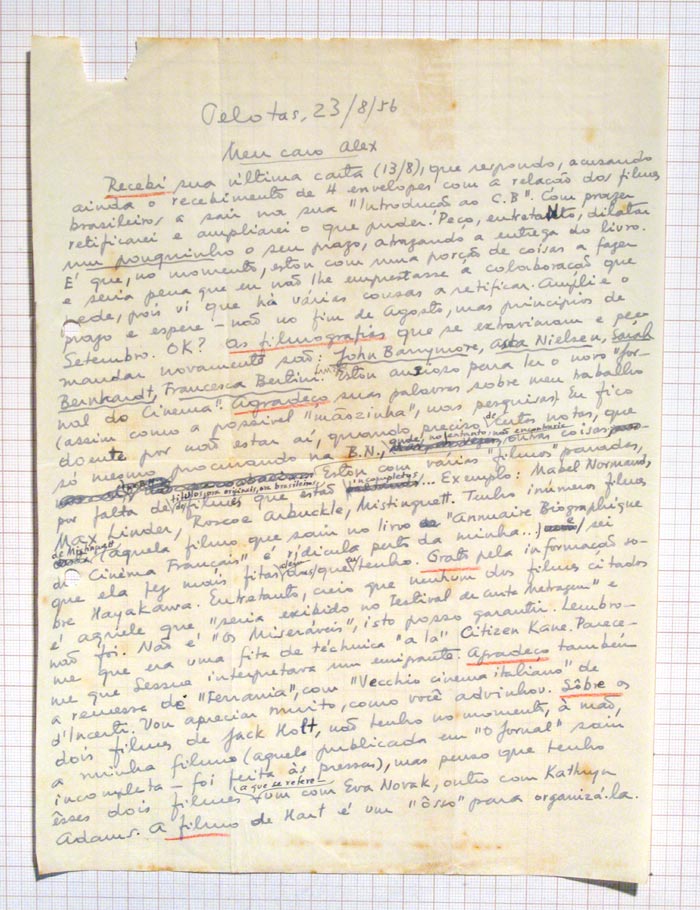 Pelotas, 23/8/56
Meu caro Alex
Recebi sua última carta (13/8), que respondo, acusando
ainda o recebimento de 4 envelopes com a relação dos filmes
brasileiros a sair na sua "Introdução ao C.B". Com prazer
retificarei e ampliarei o que puder. Peço, entretanto, dilatar
um pouquinho o seu prazo, atrazando a entrega do livro.
É que, no momento, estou com uma porção de coisas a fazer
e seria pena que eu não lhe emprestasse a colaboração que
pede, pois vi que há várias cousas a retificar. Amplie o
prazo e espere - não no fim de Agosto, mas princípios de
Setembro. OK? As filmografias que se extraviaram e peço
mandar novamente são: John Barrymore, Asta Nielsen, Sarah
Bernhardt, Francesca Bertini. Estou ancioso para ler o novo "Jor-
nal do Cinema". Agradeço suas palavras sobre meu trabalho
(assim como a possível "mãozinha", nas pesquisas). Eu fico
doente por não estar aí, quando preciso de certas notas, que
só mesmo procurando na B.N., onde, no entanto, não encontraria outras coisas
Estou com vários "filmos" parados,
por falta de títulos, ora originais, ora brasileiros, de filmes que estão incompletas... Exemplo: Mabel Normand,
Max Linder, Roscoe Arbuckle, Mistinguett. Tenho inúmeros filmes
de Mistinguett (aquela filmo que saiu no livro "Annuaire Biographique
du Cinéma Français" é ridícula perto da minha...) sei
que ela fez mais fitas das que eu tenho. Grato pela informação so-
bre Hayakawa. Entretanto, creio que nenhum dos filmes citados
é aquele que "seria exibido no Festival de Curta Metragem" e
não foi. Não é "Os Miseráveis", isto posso garantir. Lembro-
me que era uma fita de técnica "a la" Citizen Kane. Parece-
me que Sessue interpretava um emigrante. Agradeço também
a remessa de "Ferrania", com "Vecchio cinema italiano" de
d'Incerti. Vou apreciar muito, como você advinhou. Sôbre os
dois filmes de Jack Holt, não tenho no momento, à mão,
a minha filmo (aquela publicada em "O Jornal" saiu
incompleta - foi feita às pressas), mas penso que tenho
êsses dois filmes a que se refere: um com Eva Novak, outro com Kathryn
Adams. A filmo de Hart é um "ôsso" para organizá-la.